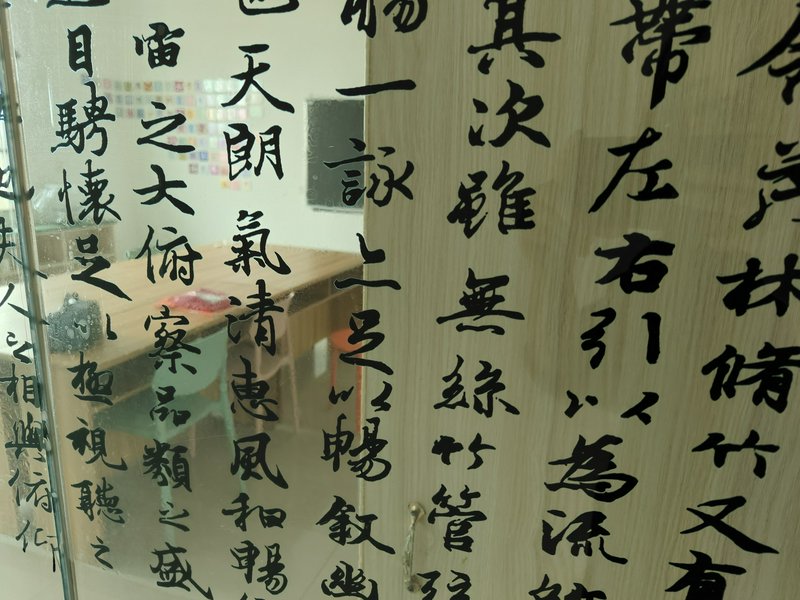 茂林脩竹又有
帶左右引以為流
其次雖無絲竹管弦
觴一詠亦足以暢敘幽
也天朗氣清惠風和暢
宙之大俯察品類之盛
目騁懷足以極視聽之
也夫人之相與俯仰